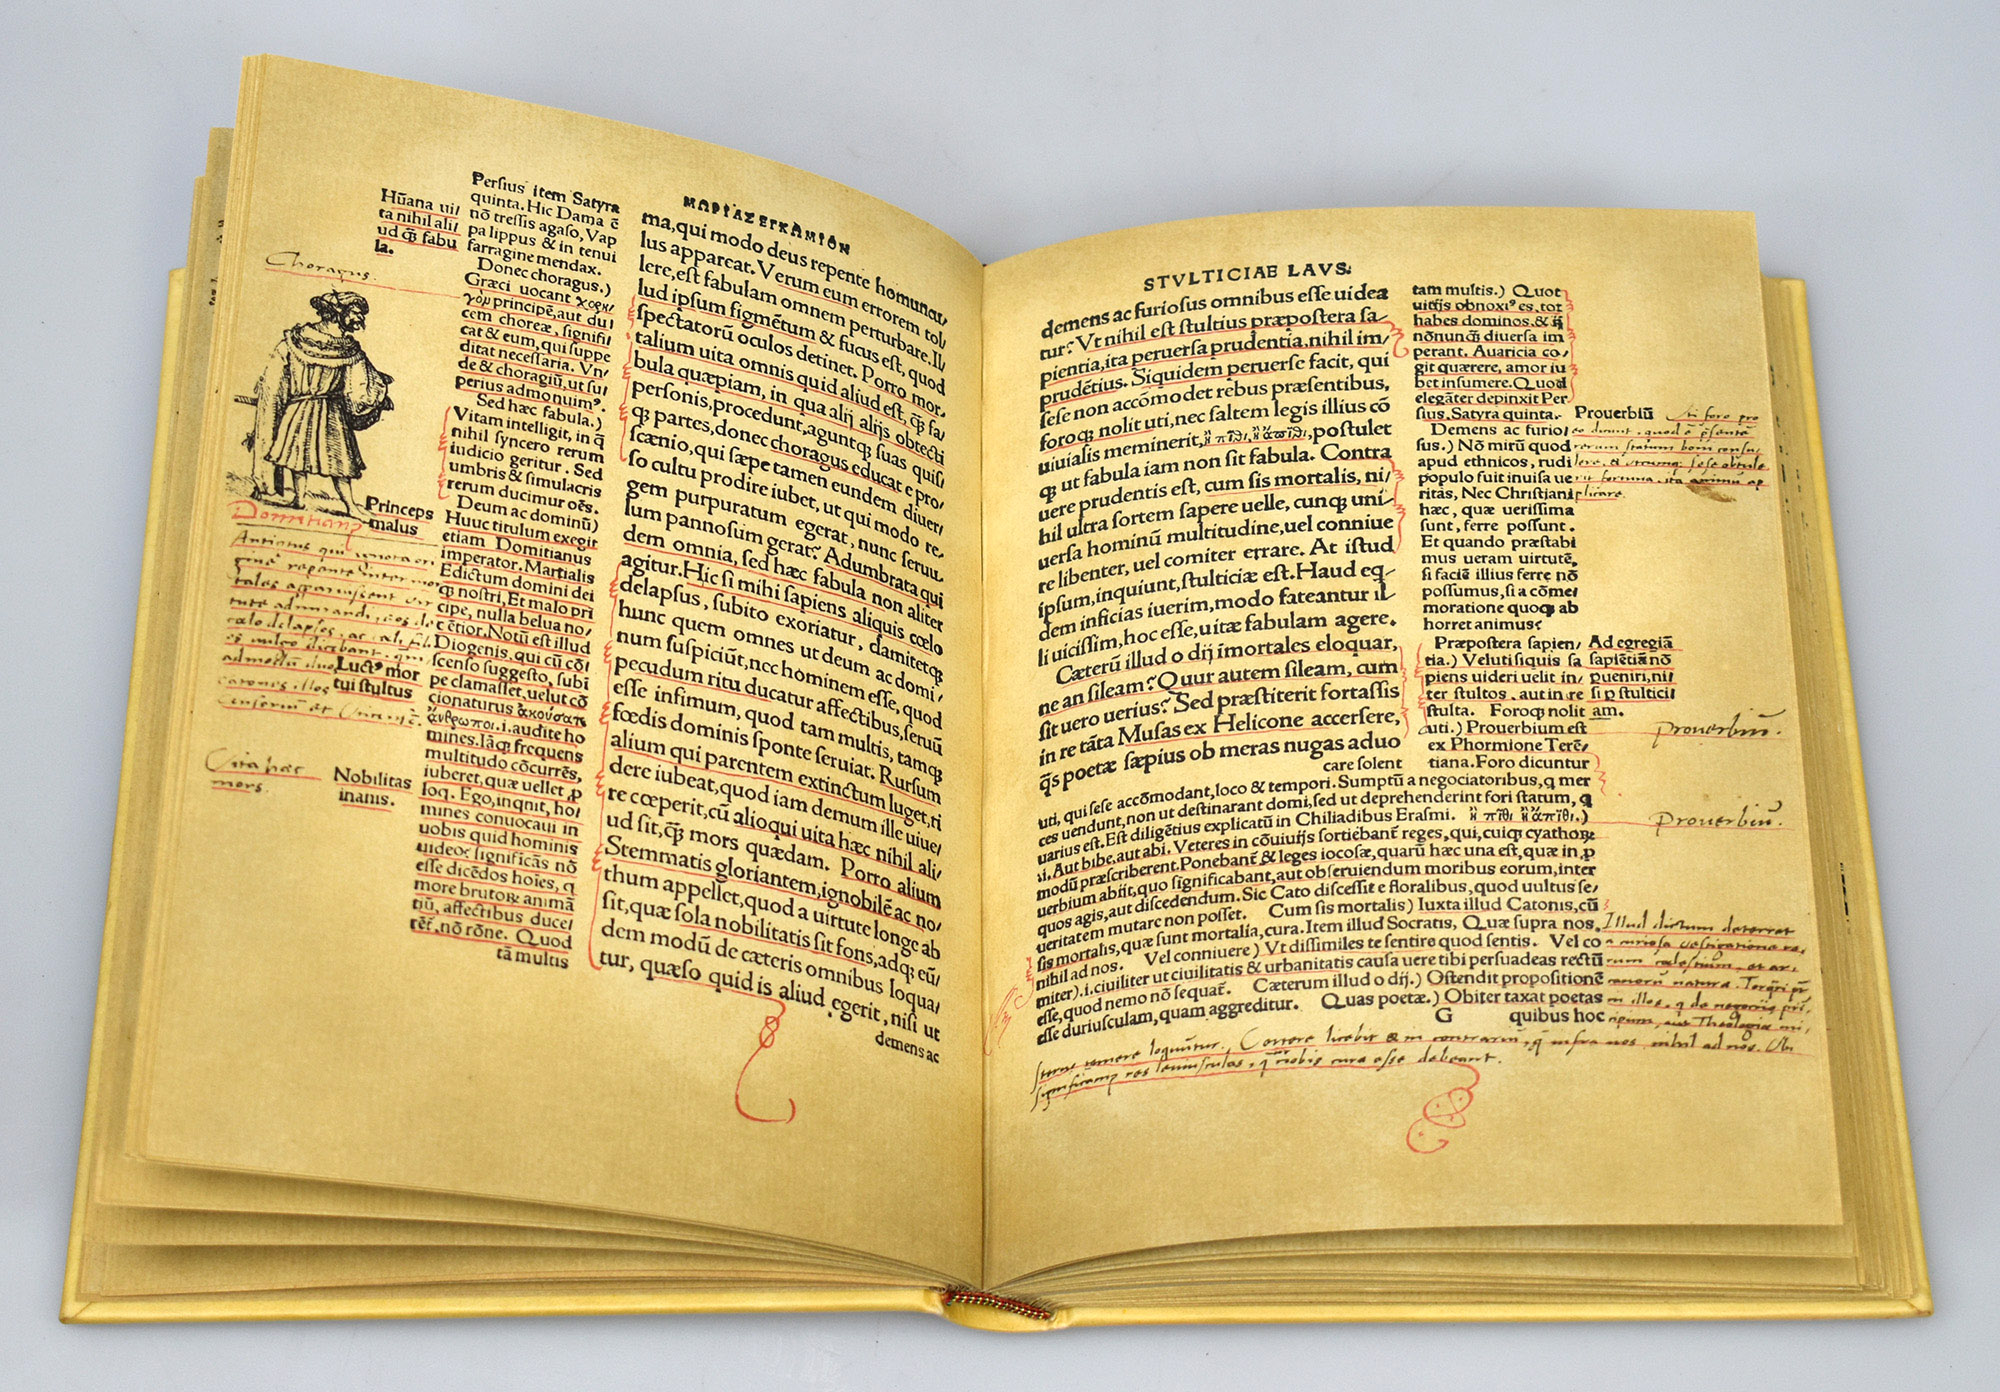 ΜΩΡΙΑΣ ΕΓΚΩΜΙΟΝ
Hūana ui/
ta nihil ali/
ud q̄3 fabu
la.
Choragus.
Princeps
malus
Domitianus
Luct9 mor
tui stultus
Vita hæc
mors.
Nobilitas
inanis.
Persius item Satyra
quinta. Hic Dama ē
nō tressis agaso, Vap
pa lippus & in tenui
farragine mendax.
Donec choragus.)
Græci uocant χορη/
γὸν principē, aut du
cem choreæ, signifi
cat & eum, qui suppe
ditat necessaria. Vn/
de & choragiū, ut su/
perius admonuim9.
Sed hæc fabula.)
Vitam intelligit, in q̄
nihil syncero rerum
iudicio geritur. Sed
umbris & simulacris
rerum ducimur oēs.
Deum ac dominū)
Huuc titulum exegit
etiam Domitianus
imperator. Martialis
Edictum domini dei
qȝ nostri, Et malo pri
cipe, nulla belua no/
cētior. Notū est illud
Diogenis, qui cū cō/
scenso suggesto, subi
pe clamasset, uelut cō
cionaturus ἀκούσατε
ἄνθρωποι .i. audite ho
mines. Iāqȝ frequens
multitudo cōcurrēs,
iuberet, quæ uellet, p
loq. Ego, inqnit, ho/
mines conuocaui in
uobis quid hominis
uideoꝭ significās nō
esse dicēdos hoīes, q
more brutoꝝ animā
tiū, affectibus duce/
rēt, nō rōne. Quod
tā multis
ma, qui modo deus repente homuncu/
lus apparcat. Verum eum errorem tol/
lere, est fabulam omnem perturbare. Il/
lud ipsum figmētum & fucus est, quod
spectatorū oculos detinet. Porro mor/
talium uita omnis quid aliud est, q̄3 fa/
bula quæpiam, in qua alij alijs obtecti
personis, procedunt, aguntqȝ suas quis/
qȝ partes, donec choragus educat e pro/
scænio, qui sæpe tamen eundem diuer/
so cultu prodire iubet, ut qui modo re/
gem purpuratum egerat, nunc seruu/
lum pannosum gerat? Adumbrata qui
dem omnia, sed hæc fabula non aliter
agitur. Hic si mihi sapiens aliquis cœlo
delapsus, subito exoriatur, clamitetqȝ
hunc quem omnes ut deum ac domi/
num suspiciūt, nec hominem esse, quod
pecudum ritu ducatur affectibus, seruū
esse infimum, quod tam multis, tamqȝ
fœdis dominis sponte seruiat. Rursum
alium qui parentem extinctum luget, ri
dere iubeat, quod iam demum ille uiue/
re cœperit, cū alioqui uita hæc nihil ali/
ud sit, q̄3 mors quædam. Porro alium
Stemmatis gloriantem, ignobilē ac no/
thum appellet, quod a uirtute longe ab
sit, quæ sola nobilitatis sit fons, adqȝ eū/
dem modū de cæteris omnibus loqua/
tur, quæso quid is aliud egerit, nisi ut
demens ac
STVLTICIAE LAVS.
demens ac furiosus omnibus esse uidea
tur? Vt nihil est stultius præpostera sa/
pientia, ita peruersa prudentia, nihil im/
prudētius. Siquidem peruerse facit, qui
sese non accōmodet rebus præsentibus,
foroqȝ nolit uti, nec saltem legis illius cō
uiuialis meminerit, ἢ πῖθι, ἢ ἄπιθι, postulet
qȝ ut fabula iam non sit fabula. Contra
uere prudentis est, cum sis mortalis, ni/
hil ultra sortem sapere uelle, cunqȝ uni/
uersa hominū multitudine, uel conniue
re libenter, uel comiter errare. At istud
ipsum, inquiunt, stulticiæ est. Haud eq/
dem inficias iuerim, modo fateantur il
li uicissim, hoc esse, uitæ fabulam agere.
Cæterū illud o dij īmortales eloquar,
ne an sileam? Qur autem sileam, cum
sit uero uerius? Sed præstiterit fortassis
in re tāta Musas ex Helicone accersere,
q̄s poetæ sæpius ob meras nugas aduo
care solent
tam multis.) Quot
uitijs obnoxi9 es, tot
habes dominos, & ij
nōnunq̄3 diuersa im
perant. Auaricia co/
git quærere, amor iu
bet insumere. Quod
elegāter depinxit Per
sius. Satyra quinta.
Demens ac furio/
sus.) Nō mirū quod
apud ethnicos, rudi
populo fuit inuisa ue
ritas, Nec Christiani
hæc, quæ uerissima
sunt, ferre possunt.
Et quando præstabi
mus ueram uirtutē,
si faciē illius ferre nō
possumus, si a cōme/
moratione quoqȝ ab
horret animus?
Præpostera sapien/
tia.) Veluti siquis sa
piens uideri uelit in/
ter stultos, aut in re
stulta. Foroqȝ nolit
uti.) Prouerbium est
ex Phormione Terē/
tiana. Foro dicuntur
Prouerbiū
Ad egregiā
sapiētiā nō
pueniri, ni/
si p stultici
am.
Prouerbiū.
Prouerbiū.
uti, qui sese accōmodant, loco & tempori. Sumptū a negociatoribus, q mer
ces uendunt, non ut destinarant domi, sed ut deprehenderint fori statum, q
uarius est. Est diligētius explicatū in Chiliadibus Erasmi. ἢ πῖθι ἢ ἄπιθι.)
.i. Aut bibe, aut abi. Veteres in cōuiuijs sortiebant̄ reges, qui, cuiqȝ cyathoꝝ
modū præscriberent. Ponebant̄ & leges iocosæ, quarū hæc una est, quæ in p
uerbium abijt, quo significabant, aut obseruiendum moribus eorum, inter
quos agis, aut discedendum. Sic Cato discessit e floralibus, quod uultus se/
ueritatem mutare non posset. Cum sis mortalis) Iuxta illud Catonis, cū
sis mortalis, quæ sunt mortalia, cura. Item illud Socratis, Quæ supra nos,
nihil ad nos. Vel conniuere) Vt dissimiles te sentire quod sentis. Vel co
miter) .i. ciuiliter ut ciuilitatis & urbanitatis causa uere tibi persuadeas rectū
esse, quod nemo nō sequat̄. Cæterum illud o dij.) Ostendit propositionē
esse duriusculam, quam aggreditur. Quas poetæ.) Obiter taxat poetas
G quibus hoc